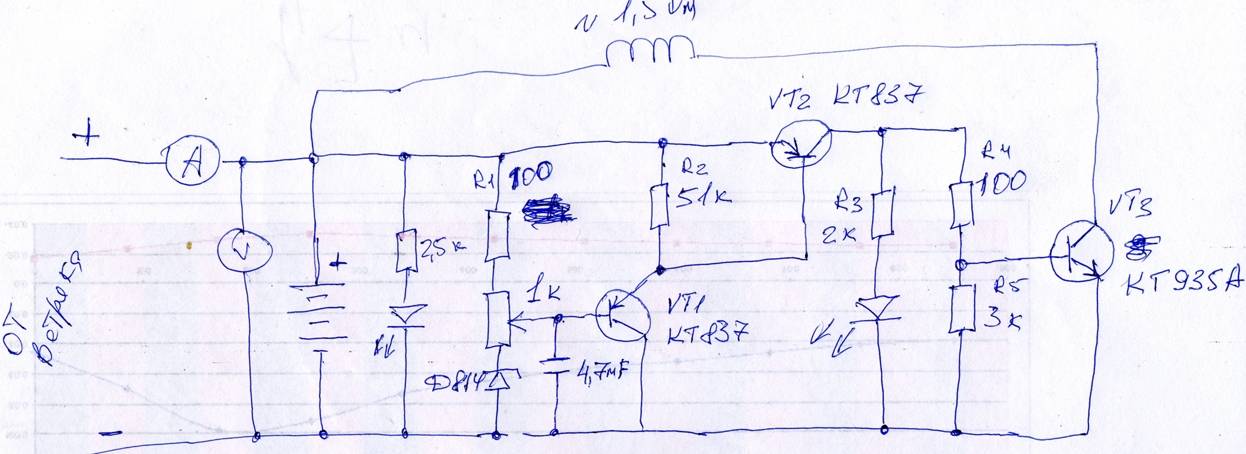 ~ 1,5 Ом
+
A
V
от
ветряка
-
+
2,5к
R1 100
1к
D814
4,7мF
R2
51к
VT1
КТ837
VT2 КТ837
R3
2к
R4
100
R5
3к
VT3
КТ935А